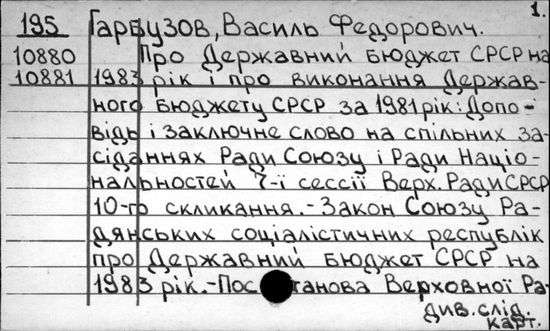 1.
195 Гарбузов, Василь Федорович.
10880 Про Державний бюджет СРСР на
10881 1983 рік і про виконання Держав-
ного бюджету СРСР за 1981 рік: Допо-
відь і заключне слово на спільних за-
сіданнях Ради Союзу і Ради Націо-
нальностей 7-ї сессії Верх. Ради СРСР
10-го скликання. - Закон Союзу Ра-
дянських соціалістичних республік
про Державний бюджет СРСР на
1983 рік. - Пос танова Верховної Ра-
див. слід.
карт.